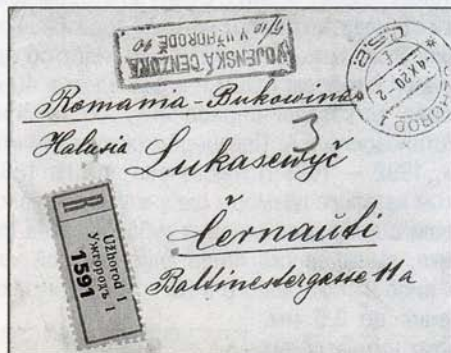 VOJENSKÁ CENZURA
V UŽHORODĚ
UŽHOROD 1
Romania-Bukowina
3
Halusia Lukasewyč
Černăuti
Baltinestergasse 11a
R
Užhorod 1
Ужгородъ 1
1591